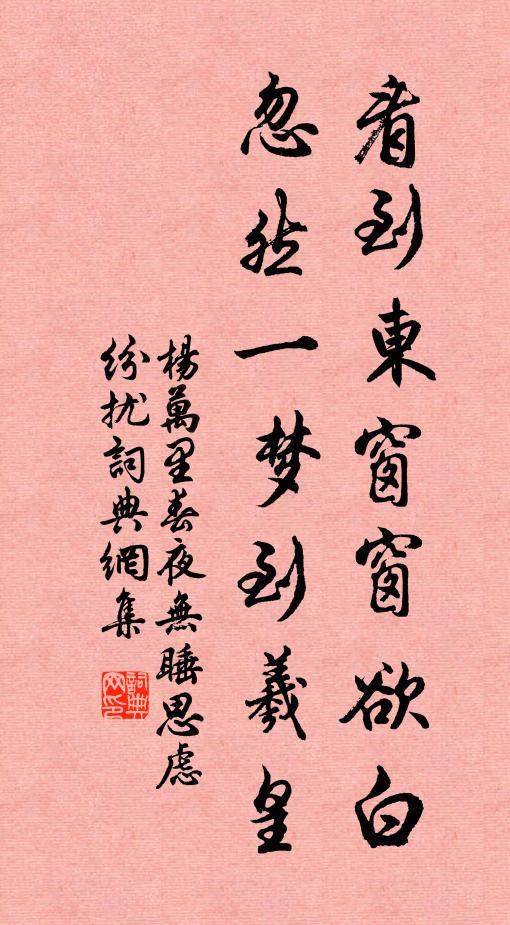 看到東窗窗欲白
忽然一梦到羲皇
楊萬里春夜無睡思慮
紛扰詞典網集
詞典
网印